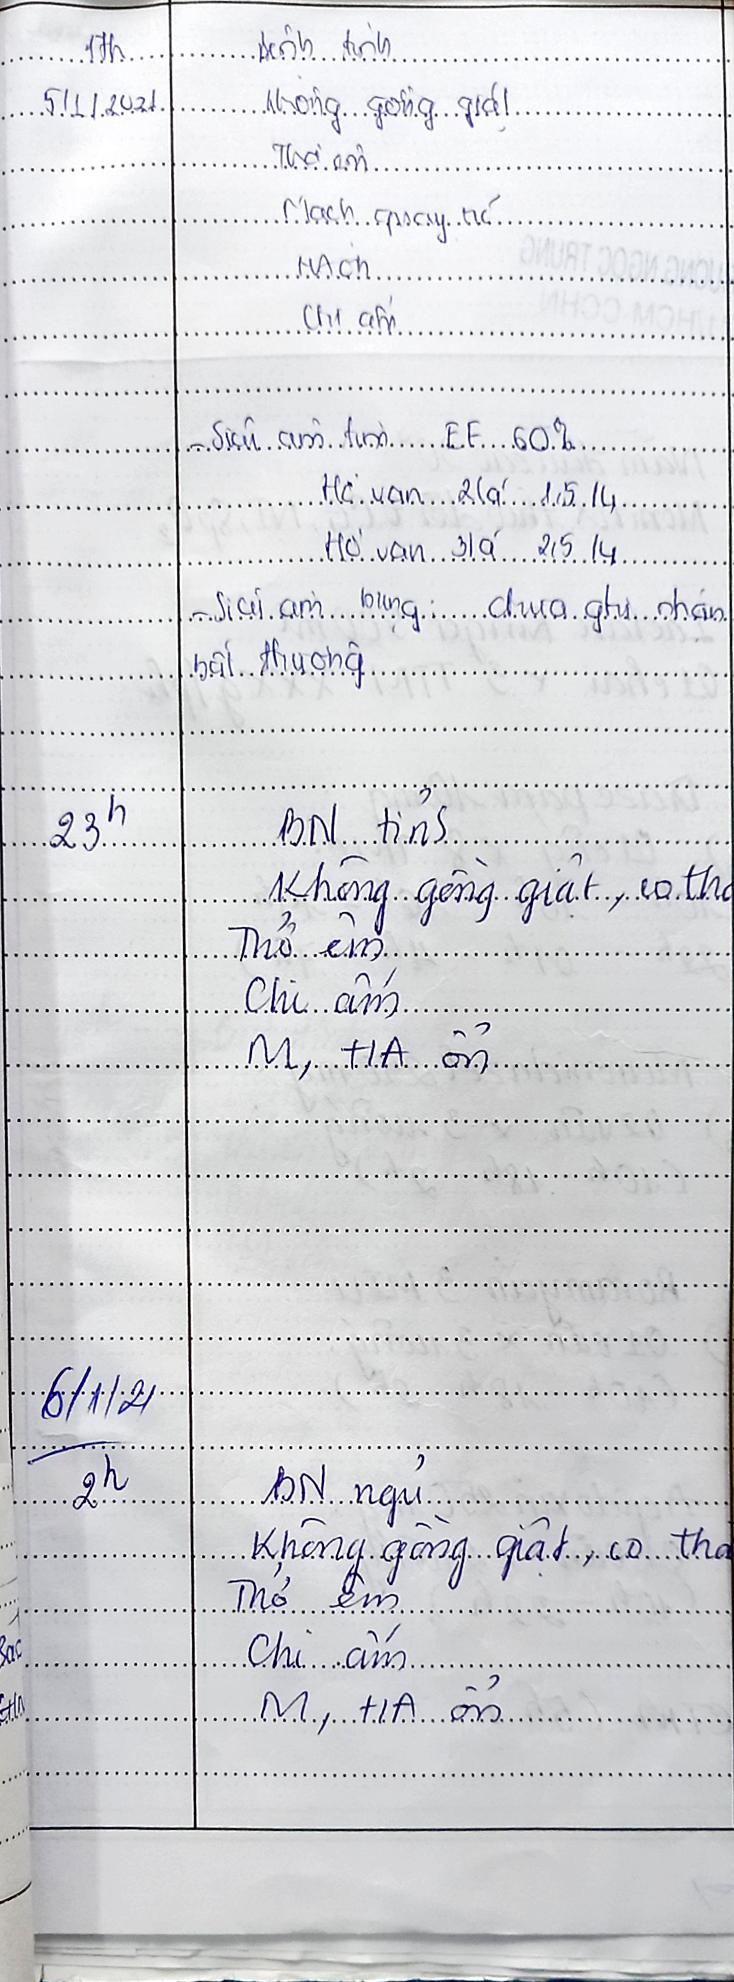 17h
5/1/2021
bệnh tỉnh
không gồng giật
Thở êm
Mạch quay rõ
HA ổn
Chi ấm
- Siêu âm tim EF 60%
Hở van 2 lá 1.5/4
Hở van 3 lá 2.5/4
- Siêu âm bụng: chưa ghi nhận
bất thường
23h
BN tỉnh
Không gồng giật, co
Thở êm
Chi ấm
M, HA ổn
6/1/21
2h
BN ngủ
Không gồng giật, co
Thở êm
Chi ấm
M, HA ổn